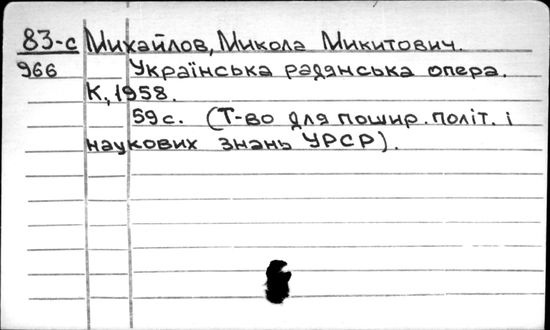 83-с Михайлов, Микола Микитович.
966 Українська радянська опера.
К, 1958.
59 с. (Т-во для пошир. політ. і
наукових знань УРСР).